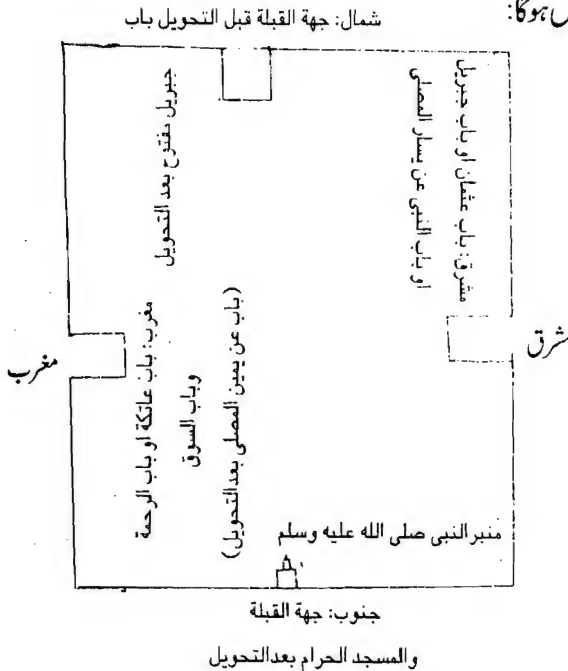 ہوگا:
شمال: جهة القبلة قبل التحويل باب
جبريل مفتوح بعد التحويل
مشرق: باب عثمان او باب جبريل
او باب النبى عن يسار المصلى
مشرق
مغرب
مغرب: باب عاتكة او باب الرحمة
وباب السوق
(باب عن يمين المصلى بعد التحويل)
منبر النبى صلى الله عليه وسلم
جنوب: جهة القبلة
والمسجد الحرام بعدالتحويل